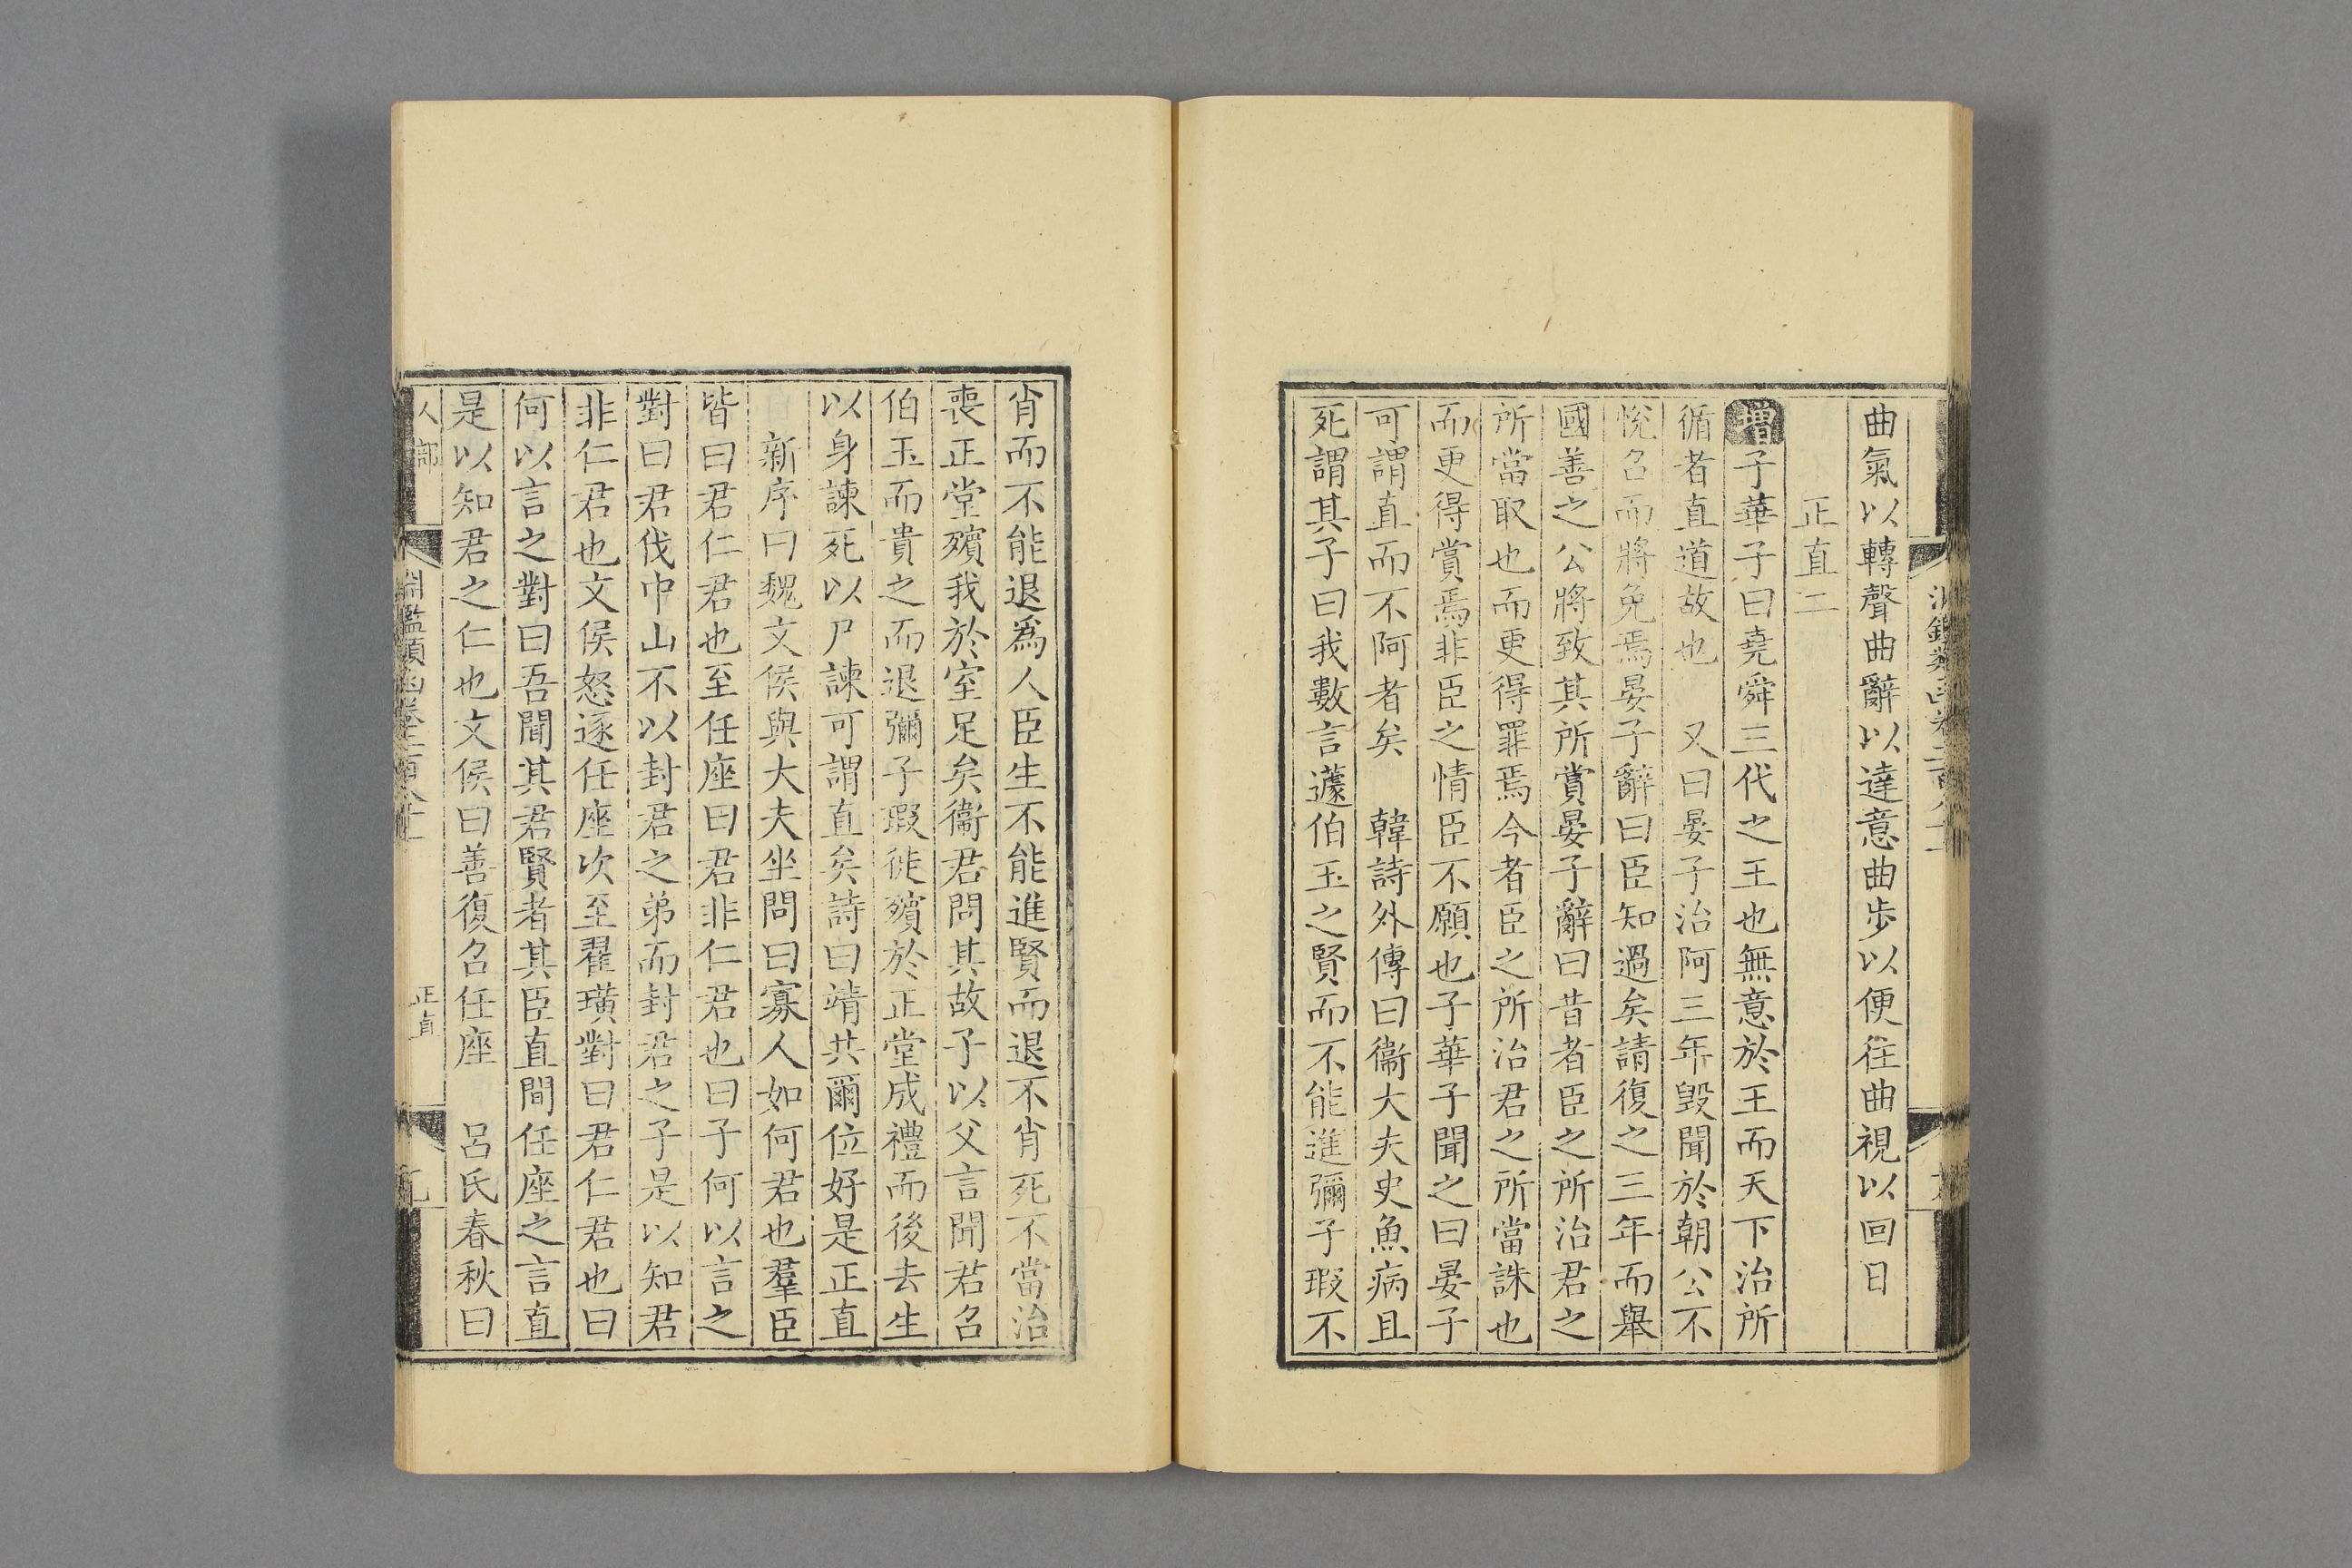 曲氣以轉聲曲辭以達意曲步以便往曲視以回日
正直二
增子華子曰堯舜三代之王也無意於王而天下治所
循者直道故也　又曰晏子治阿三年毀聞於朝公不
悅召而將免焉晏子辭曰臣知過矣請復之三年而舉
國善之公將致其所賞晏子辭曰昔者臣之所治君之
所當取也而更得罪焉今者臣之所治君之所當誅也
而更得賞焉非臣之情臣不願也子華子聞之曰晏子
可謂直而不阿者矣　韓詩外傳曰衞大夫史魚病且
死謂其子曰我數言蘧伯玉之賢而不能進彌子瑕不
肖而不能退爲人臣生不能進賢而退不肖死不當治
喪正堂殯我於室足矣衞君問其故子以父言聞君召
伯玉而貴之而退彌子瑕徙殯於正堂成禮而後去生
以身諫死以尸諫可謂直矣詩曰靖共爾位好是正直
新序曰魏文侯與大夫坐問曰寡人如何君也羣臣
皆曰君仁君也至任座曰君非仁君也曰子何以言之
對曰君伐中山不以封君之弟而封君之子是以知君
非仁君也文侯怒逐任座次至翟璜對曰君仁君也曰
何以言之對曰吾聞其君賢者其臣直間任座之言直
是以知君之仁也文侯曰善復召任座　呂氏春秋曰
人部　淵鑑類函卷二百八十二　正直